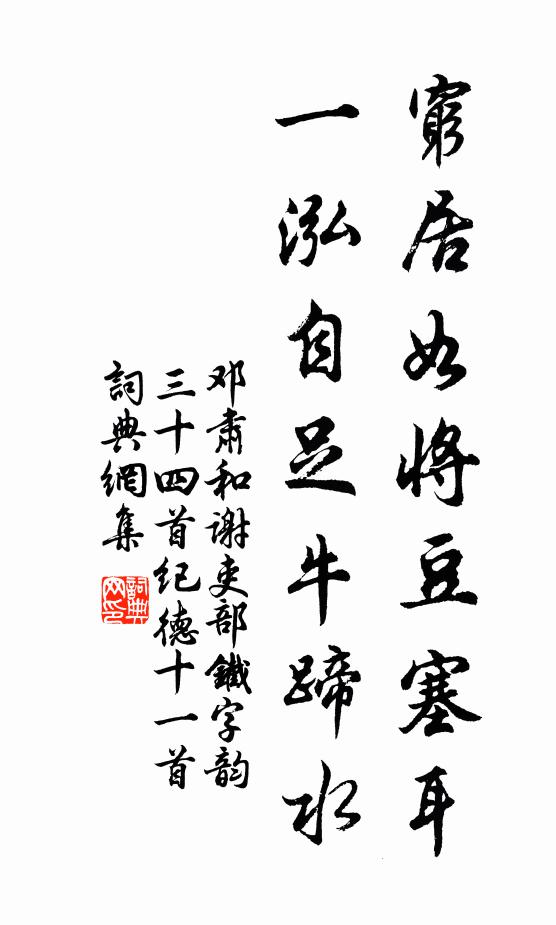 窮居如將豆塞耳
一泓自足牛蹄水
邓肅和謝吏部鐵字韵
三十四首紀德十一首
詞典網集
詞典網印